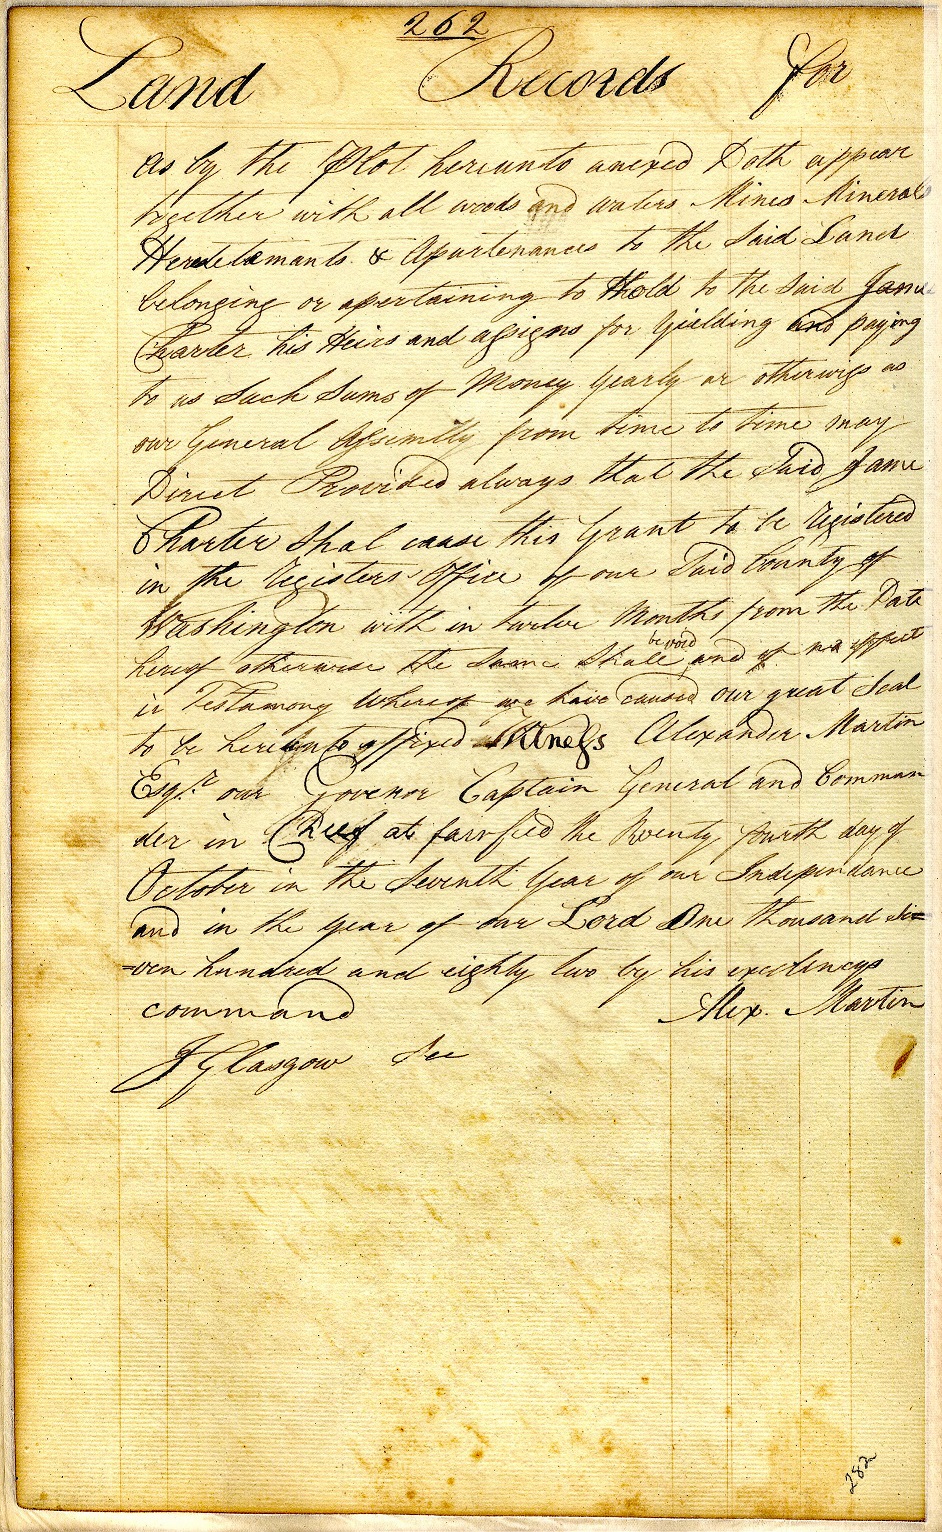 262
Land Records for
as by the Plot hereunto anexed Doth appear
together with all woods and waters Mines Minerals
Heredetamants & Apurtenances to the Said Land
belonging or apertaining to Hold to the Said Jame
Charter his Heirs and assigns for Yielding and paying
to us Such Sums of Money Yearly or otherwys as
our General Assembly from time to time may
Direct Provided always that the Said Jame
Charter Shal cause this Grant to be Registered
in the Registers Office of our Said County of
Washington with in twelve Months from the Date
herof otherwise the Same Shall be void and of no effect
in Testamony Whereof we have caused our great Seal
to be hereunto affixed Witness Alexander Martin
Esqr. our Govenor Captain General and Comman
der in Chief at fairfied the Twenty fourth day of
October in the Seventh Year of our Independance
and in the year of our Lord One thousand Se=
=ven hundred and eighty two by his excelencys
command Alex. Martin
J Glasgow Sec
282